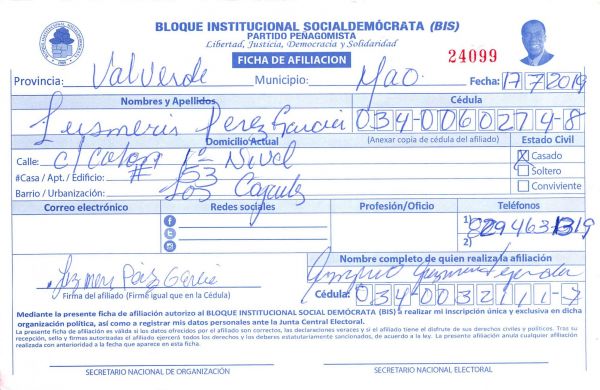 BLOQUE INSTITUCIONAL SOCIALDEMÓCRATA (BIS)
PARTIDO PEÑAGOMISTA
Libertad, Justicia, Democracia y Solidaridad
FICHA DE AFILIACION
24099
Provincia: Valverde Municipio: Mao. Fecha: 17/7/2019
Nombres y Apellidos Cédula
Leismeris Perez Garcia 034-0060274-8
Domicilio Actual (Anexar copia de cédula del afiliado) Estado Civil
Calle: c/ Colon 1º Nivel X Casado
#Casa / Apt. / Edificio: # 53 Soltero
Barrio / Urbanización: Los Conviviente
Correo electrónico Redes sociales Profesión/Oficio Teléfonos
1) 829 463-1319
2)
Nombre completo de quien realiza la afiliación
Firma del afiliado (Firme igual que en la Cédula) Cédula: 034-0032111-7
Mediante la presente ficha de afiliación autorizo al BLOQUE INSTITUCIONAL SOCIAL DEMÓCRATA (BIS) a realizar mi inscripción única y exclusiva en dicha
organización política, así como a registrar mis datos personales ante la Junta Central Electoral.
La presente ficha de afiliación es válida si los datos ofrecidos por el afiliado son correctos, las declaraciones veraces y si el afiliado tiene el disfrute de sus derechos civiles y políticos. Tras su
recepción, sello y firmas autorizadas el afiliado ejercerá todos los derechos y los deberes estatutariamente sancionados, de acuerdo con la ley. La presente afiliación anula cualquier afiliación
realizada con anterioridad a la fecha que aparece en esta ficha.
SECRETARIO NACIONAL DE ORGANIZACIÓN SECRETARIO NACIONAL ELECTORAL